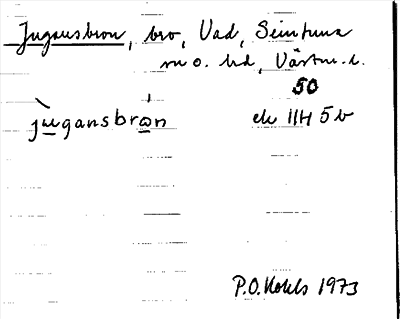 Jugansbron, bro, Vad, Semtuna
sn o. hd, Västm. l.
50
jugansbron ek 11H 5b
P.O. Kohls 1973